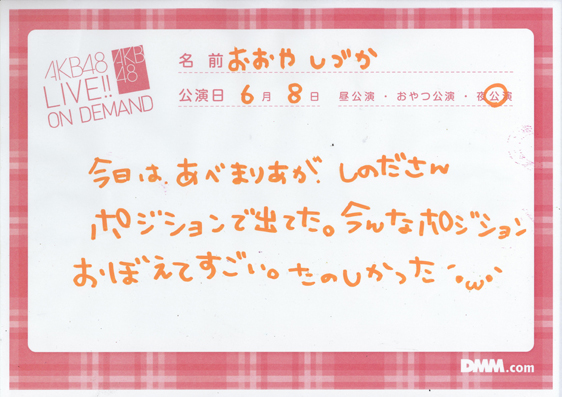 AKB48
LIVE!!
ON DEMAND
AKB
48
名前 おおや しづか
公演日 6月 8日 昼公演・おやつ公演・夜公演
今日は、あべまりあが、しのださん
ポジションで出てた。今んなポジション
おぼえてすごい。たのしかった ´・ω・`
DMM.com